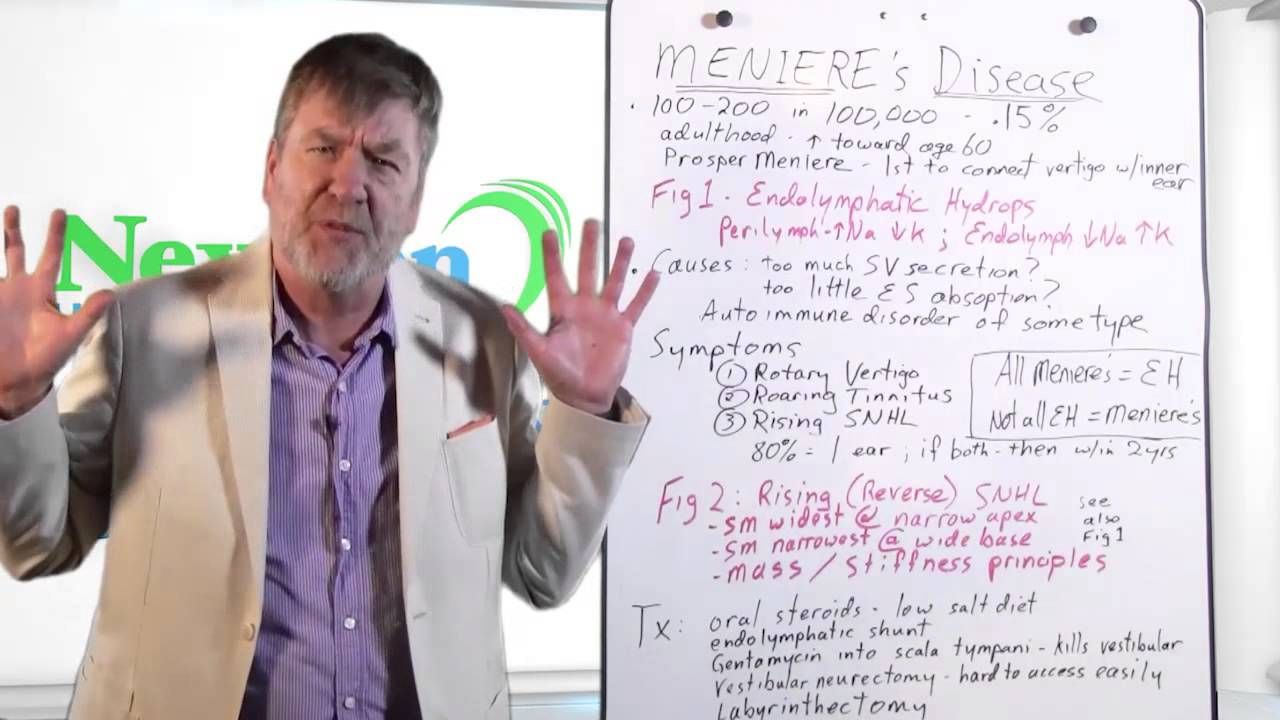 New
en
MENIERE's Disease
· 100-200 in 100,000 - .15%
adulthood - ↑ toward age 60
Prosper Meniere - 1st to connect vertigo w/inner
ear
Fig 1. Endolymphatic Hydrops
Perilymph-↑Na ↓K ; Endolymph ↓Na ↑K
· Causes: too much SV secretion?
too little ES absoption?
Auto immune disorder of some type
Symptoms
① Rotary Vertigo
② Roaring Tinnitus
③ Rising SNHL
All Meniere's = EH
Not all EH = Meniere's
80% = 1 ear ; if both - then w/in 2yrs
Fig 2: Rising (Reverse) SNHL
- SM widest @ narrow apex
- SM narrowest @ wide base
- mass / stiffness principles
see
also
Fig 1
Tx: oral steroids - low salt diet
endolymphatic shunt
Gentomycin into scala tympani - kills vestibular
Vestibular neurectomy - hard to access easily
Labyrinthectomy